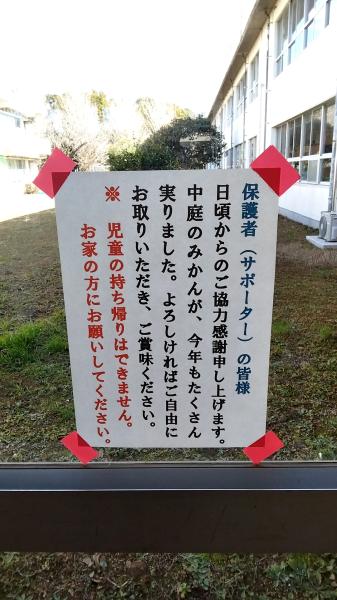 保護者（サポーター）の皆様
日頃からのご協力感謝申し上げます。
中庭のみかんが、今年もたくさん
実りました。よろしければご自由に
お取りいただき、ご賞味ください。
※ 児童の持ち帰りはできません。
お家の方にお願いしてください。